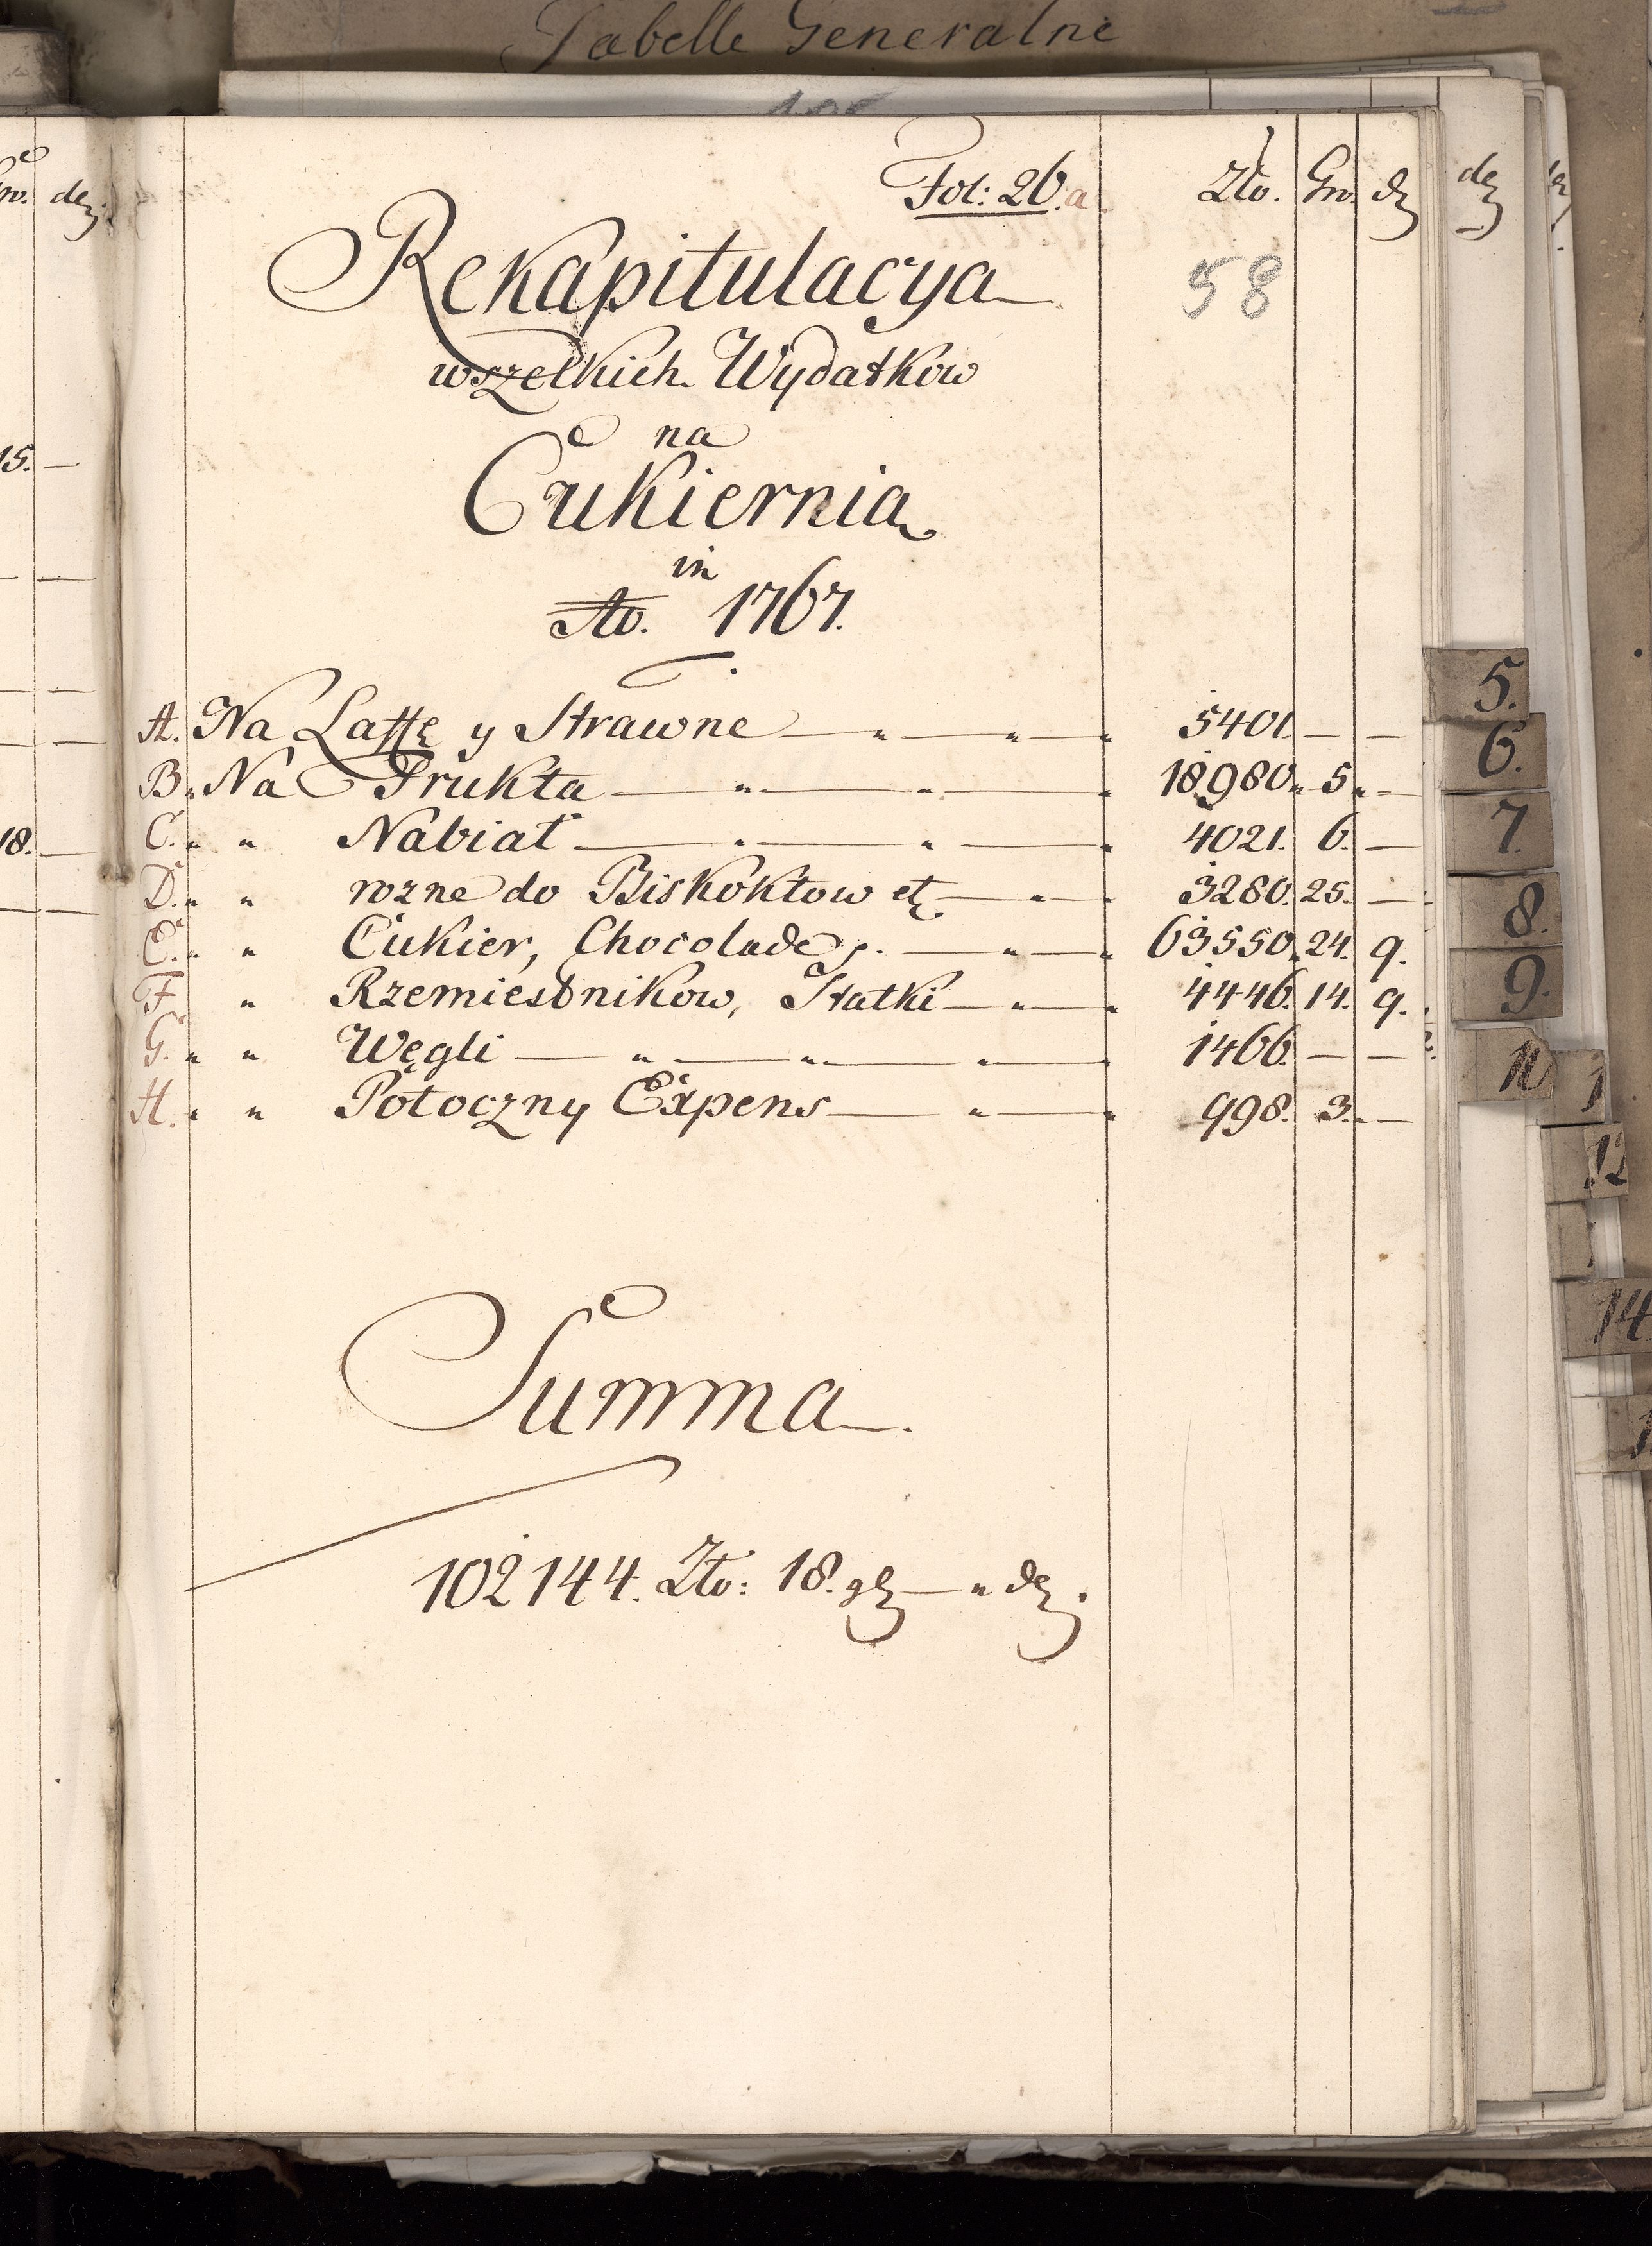 Tabelle Generalne
Fol: 26.a.
Zło. Gro. dz
58
Rekapitulacya
wszelkich Wydatkow
na
Cukiernia
in
Ao. 1767.
A. Na Laffę y Strawne — „ — „ — „ 5401. — —
B. Na Frukta — „ — „ — „ 18980. 5. —
C. „ „ Nabiał — „ — „ — „ 4021. 6. —
D. „ „ rozne do Biskoktow etc. — „ — „ 3280. 25. —
E. „ „ Cukier, Chocolade p. — „ — „ 63550. 24. 9.
F. „ Rzemiesbnikow, Statki — „ — „ 4446. 14. 9.
G. „ „ Węgli — „ — „ — „ — 1466. — —
H. „ „ Potoczny Expens — „ — „ 998. 3. —
Summa.
102144. Zło: 18. gl — „ dz.
15. —
18. —
dz.
dz
5.
6.
7.
8.
9.
12
14